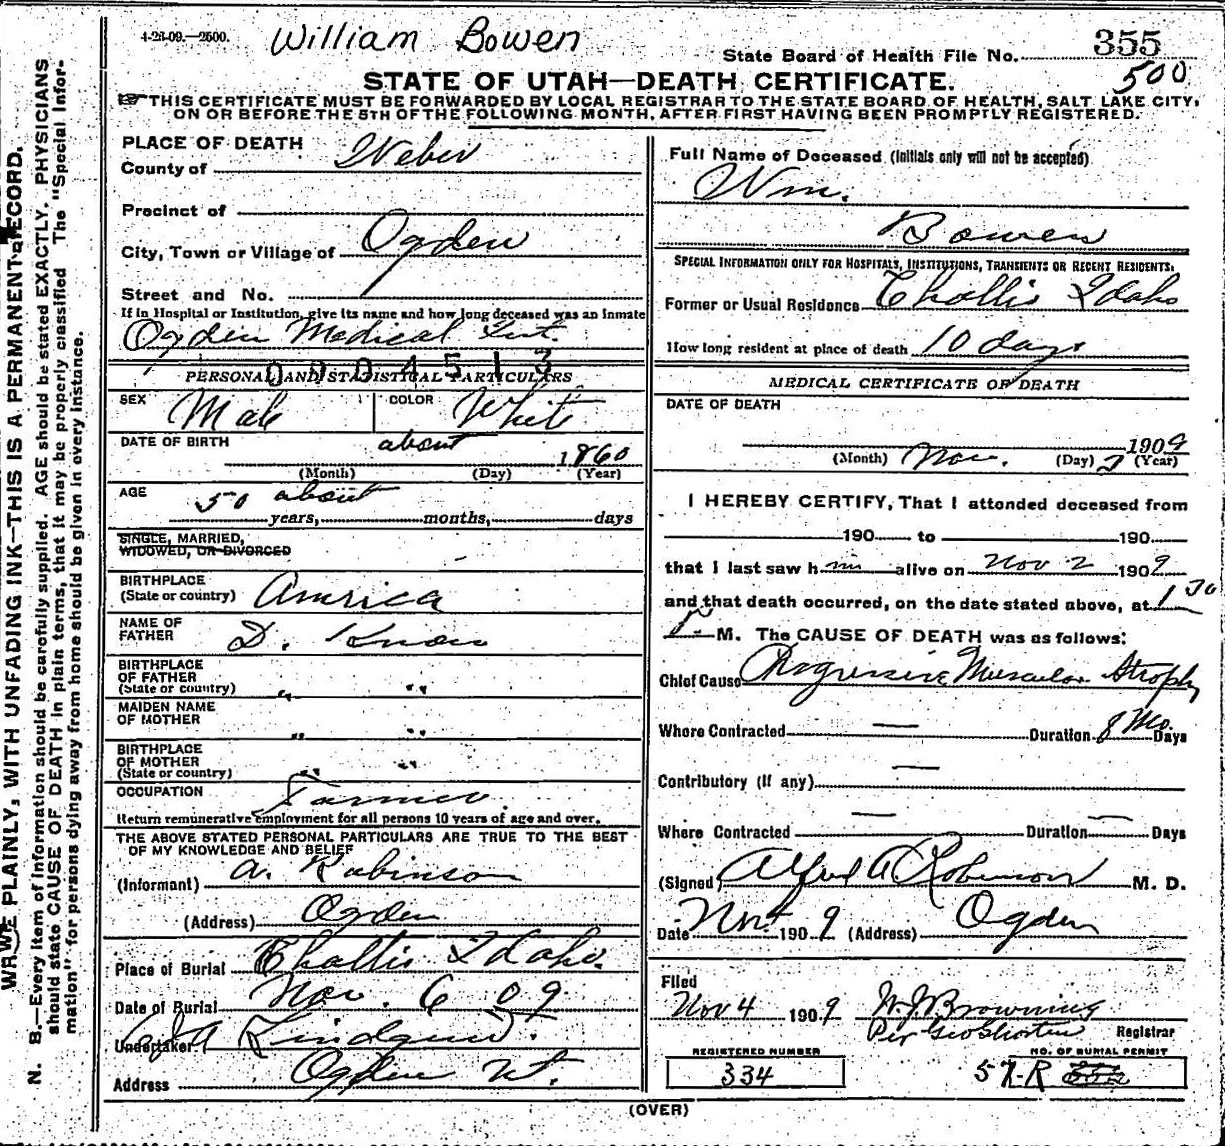 4-26-09.—2500.
William Bowen
State Board of Health File No. 355
500
STATE OF UTAH—DEATH CERTIFICATE.
THIS CERTIFICATE MUST BE FORWARDED BY LOCAL REGISTRAR TO THE STATE BOARD OF HEALTH, SALT LAKE CITY,
ON OR BEFORE THE 5TH OF THE FOLLOWING MONTH, AFTER FIRST HAVING BEEN PROMPTLY REGISTERED.
WRITE PLAINLY, WITH UNFADING INK—THIS IS A PERMANENT RECORD.
N. B.—Every item of information should be carefully supplied. AGE should be stated EXACTLY. PHYSICIANS
should state CAUSE OF DEATH in plain terms, that it may be properly classified. The "Special Infor-
mation" for persons dying away from home should be given in every instance.
PLACE OF DEATH
County of Weber
Precinct of
City, Town or Village of Ogden
Street and No.
If in Hospital or Institution, give its name and how long deceased was an inmate
Ogden Medical Inst.
0004513
PERSONAL AND STATISTICAL PARTICULARS
SEX Male COLOR White
DATE OF BIRTH about 1860
(Month) (Day) (Year)
AGE 50 about
years, months, days
SINGLE, MARRIED,
WIDOWED, OR DIVORCED
BIRTHPLACE
(State or country) America
NAME OF
FATHER D. Know
BIRTHPLACE
OF FATHER
(State or country) " "
MAIDEN NAME
OF MOTHER " "
BIRTHPLACE
OF MOTHER
(State or country) " "
OCCUPATION Farmer
Return remunerative employment for all persons 10 years of age and over.
THE ABOVE STATED PERSONAL PARTICULARS ARE TRUE TO THE BEST
OF MY KNOWLEDGE AND BELIEF
(Informant) A. Robinson
(Address) Ogden
Place of Burial Challis Idaho.
Date of Burial Nov. 6 09
Undertaker Lindquist.
Address Ogden Ut.
Full Name of Deceased (Initials only will not be accepted)
Wm.
Bowen
SPECIAL INFORMATION ONLY FOR HOSPITALS, INSTITUTIONS, TRANSIENTS OR RECENT RESIDENTS.
Former or Usual Residence Challis Idaho
How long resident at place of death 10 days
MEDICAL CERTIFICATE OF DEATH
DATE OF DEATH
1909
(Month) Nov. (Day) 2 (Year)
I HEREBY CERTIFY, That I attended deceased from
190 to 190
that I last saw him alive on Nov 2 1909
and that death occurred, on the date stated above, at 1 30
P. M. The CAUSE OF DEATH was as follows:
Chief Cause Progressive Muscular Atrophy
Where Contracted — Duration 8 Mo. Days
Contributory (If any) —
Where Contracted — Duration — Days
(Signed) Alfred A Robinson M. D.
Date Nov. 1909 (Address) Ogden
Filed
Nov 4 1909 W J Browning
Per Geo Shorten Registrar
REGISTERED NUMBER
334
NO. OF BURIAL PERMIT
57-R
(OVER)